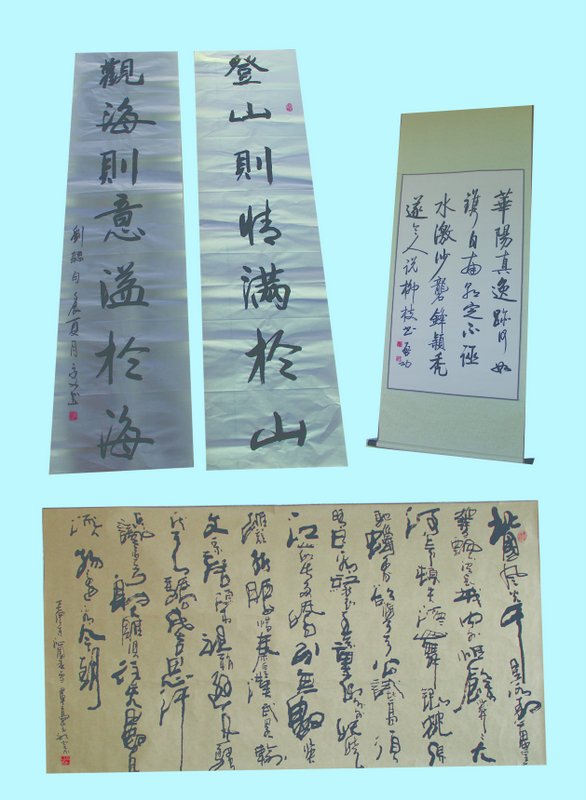 登山則情滿於山
觀海則意溢於海
劉勰句
華陽真逸跡何如
定不誣
水激沙礱鋒穎秃
遂令人說柳枝書 啟功
北國風光千里冰封萬里雪
飄望長城內外惟餘莽莽大
河上下頓失滔滔山舞銀蛇原
馳蠟象欲與天公試比高須
晴日看紅裝素裹分外妖嬈
江山如此多嬌引無數英
雄競折腰惜秦皇漢武略輸
文采唐宗宋祖稍遜風騷
一代天驕成吉思汗
只識彎弓射大雕俱往矣數風
流人物還看今朝